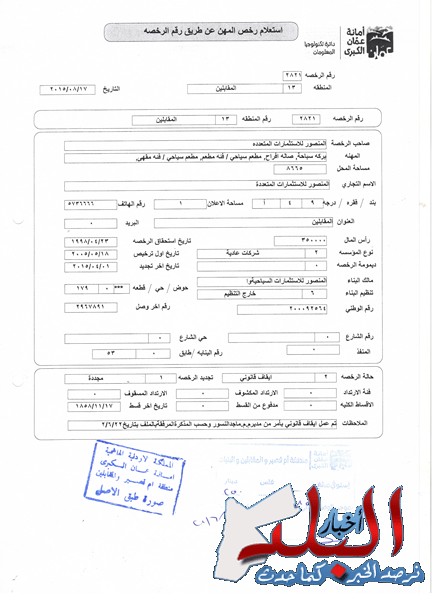 استعلام رخص المهن عن طريق رقم الرخصه
أمانة عمّان الكبرى
دائرة تكنولوجيا المعلومات
رقم الرخصه ٢٨٢١
المنطقه ١٣ المقابلين التاريخ ٢٠١٥/٠٨/١٧
رقم الرخصه ٢٨٢١ المنطقه ١٣ المقابلين
صاحب الرخصة المنصور للاستثمارات المتعدده
المهنه بركه سباحة, صاله افراح, مطعم سياحي / فئه مطعم, مطعم سياحي / فئه مقهى,
مساحة المحل ٨٦٦٥
الاسم التجاري المنصور للاستثمارات المتعددة
بند / فقره / درجه ٩ ٤ أ مساحة الاعلان ١ رقم الهاتف ٥٧٣٦٦٦٦
العنوان المقابلين البريد ٠
رأس المال ٣٥٠٠٠٠ تاريخ استحقاق الرخصه ١٩٩٨/٠٤/٢٣
نوع المؤسسه ٢ شركات عادية تاريخ اول ترخيص ٢٠٠٥/٠٥/١٨
ديمومة الرخصه ٠ تاريخ اخر تجديد ٢٠١٥/٠٤/٠١
مالك البناء المنصور للاستثمارات حوض / حي / قطعه *** ٠ ١٧٩
تنظيم البناء ٦ خارج التنظيم
رقم الوطني ٢٠٠٠٩٢٥٦٤ رقم اخر وصل ٢٩٦٧٨٩١
رقم الشارع ٠ حي الشارع ٠
المنفذ ٠ رقم البنايه /طابق ٥٣ ٠
حالة الرخصه ٢ ايقاف قانوني تجديد الرخصه ١ مجددة
فئة الارتداد ٠ الارتداد المكشوف ٠ الارتداد المسقوف ٠
الاقساط الكليه ٠ مدفوع من القسط ٠ تاريخ اخر قسط ١٨٥٨/١١/١٧
الملاحظات تم عمل ايقاف قانوني بأمر من مدير م.م.ماجدالنسور وحسب المذكرةالمرفقةبالملف بتاريخ٢/٦/٢٢
المملكة الاردنية الهاشمية
امانة عمان الكبرى
منطقة ام قصير والمقابلين
صورة طبق الاصل
أخبار
البلد
نرصد الخبر كما حدث